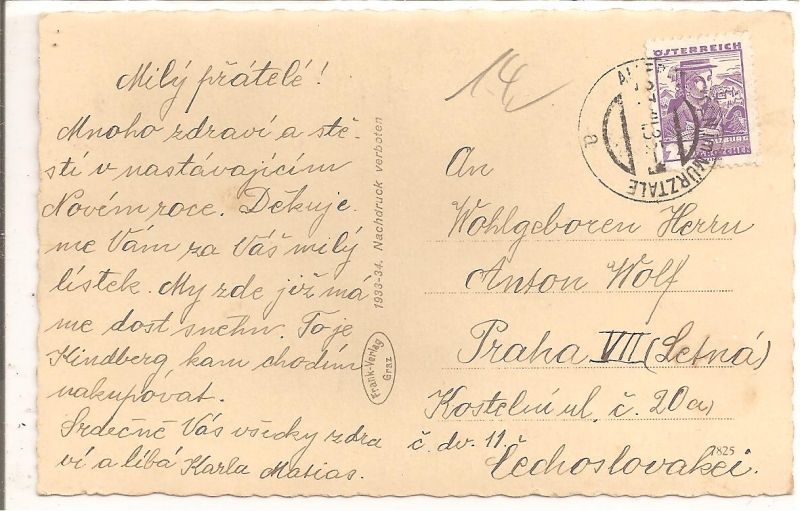 Milý přátelé!
Mnoho zdraví a stě-
stí v nastávajícím
Novém roce. Děkuje
me Vám za Váš milý
lístek. My zde již má
me dost sněhu. To je
Kindberg, kam chodím
nakupovat.
Srdečně Vás všecky zdra
ví a líbá Karla Matias.
1933-34. Nachdruck verboten
Frank-Verlag
Graz
14
ÖSTERREICH
MÜRZTALE
a
An
Wohlgeboren Herrn
Anton Wolf
Praha VII (Letná)
Kostelní ul. č. 20a)
č. dv. 11.
Čechoslovakei.
7825